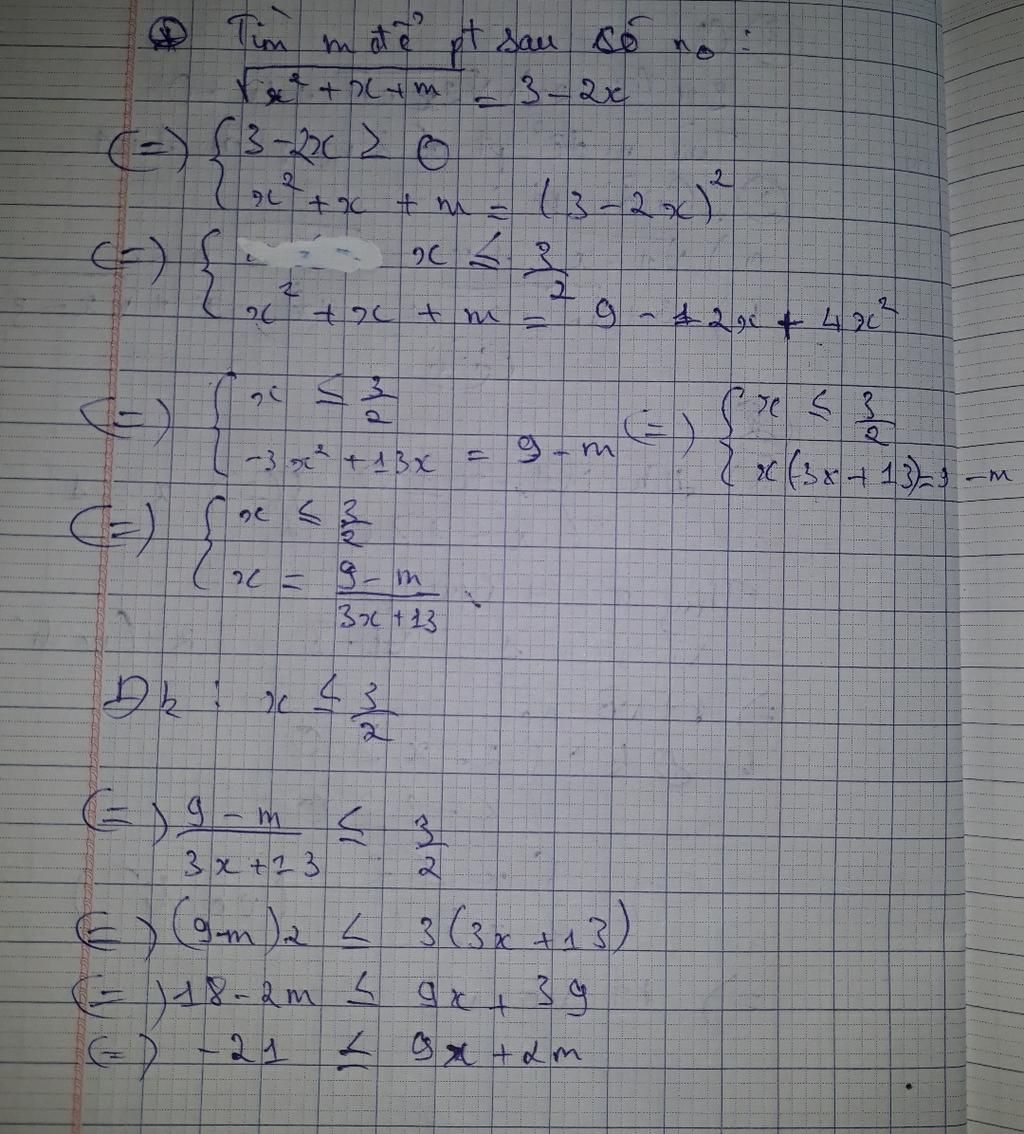 Tìm m để pt sau có no :
√x² + x + m = 3 - 2x
(=) { 3 - 2x ≥ 0
x² + x + m = (3 - 2x)²
(=) { x ≤ 3/2
x² + x + m = 9 - 12x + 4x²
(=) { x ≤ 3/2
-3x² + 13x = 9 - m
(=) { x ≤ 3/2
x(-3x + 13) = 9 - m
(=) { x ≤ 3/2
x = 9 - m / 3x + 13
Đk : x ≤ 3/2
(=) 9 - m / 3x + 13 ≤ 3/2
(=) (9-m)2 ≤ 3(3x + 13)
(=) 18 - 2m ≤ 9x + 39
(=) -21 ≤ 9x + 2m